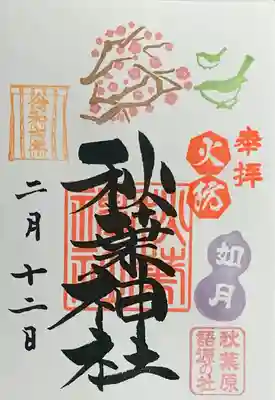 奉拝
火防
如月
秋葉原
語源の社
秋葉神社
二月十二日